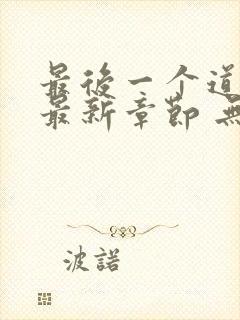 最後一个道
最新章節 無
波諾